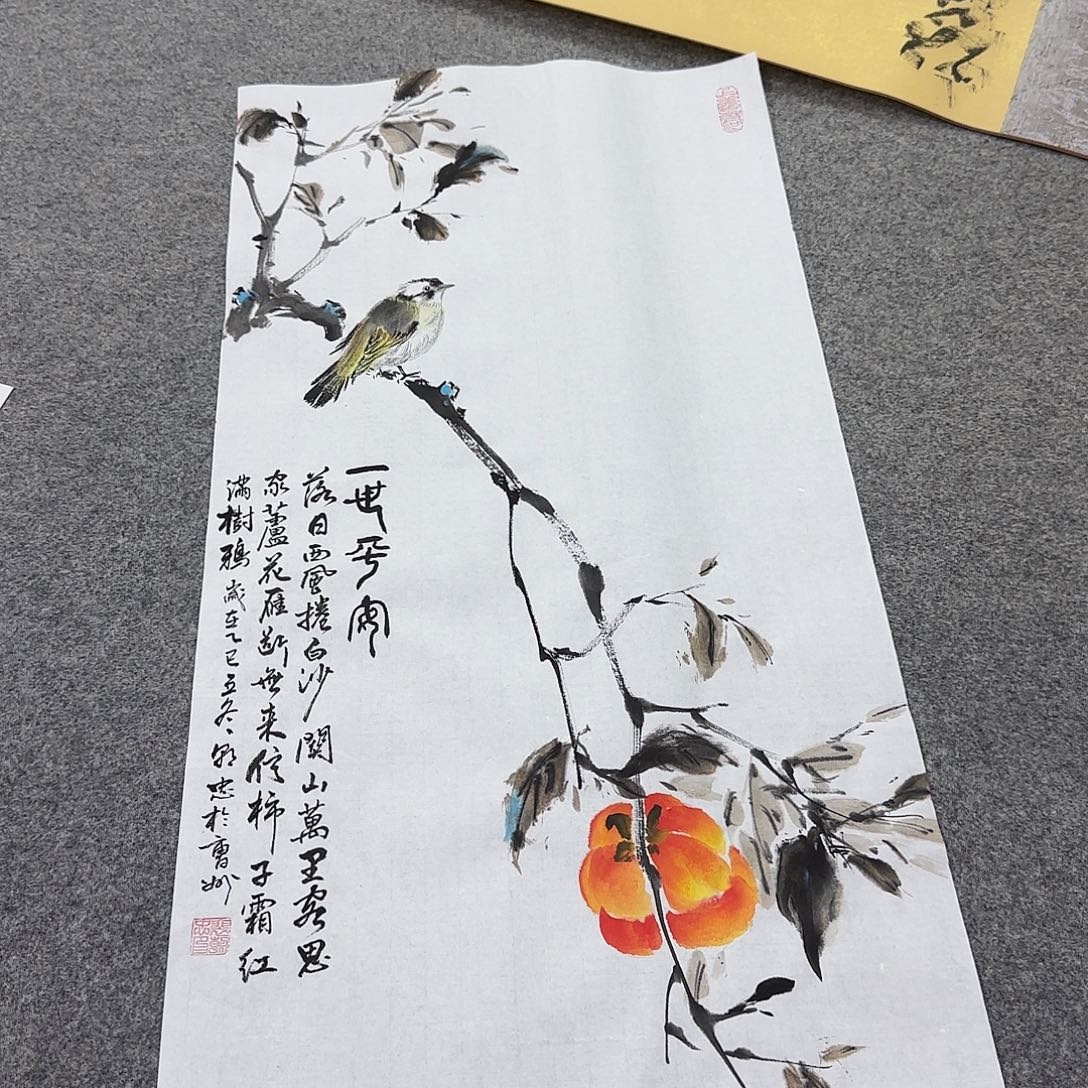 一世平安
落日西風捲白沙關山萬里客思
家蘆花雁斷無來信柿子霜紅
滿樹鴉歲在乙巳立冬忠於曹州